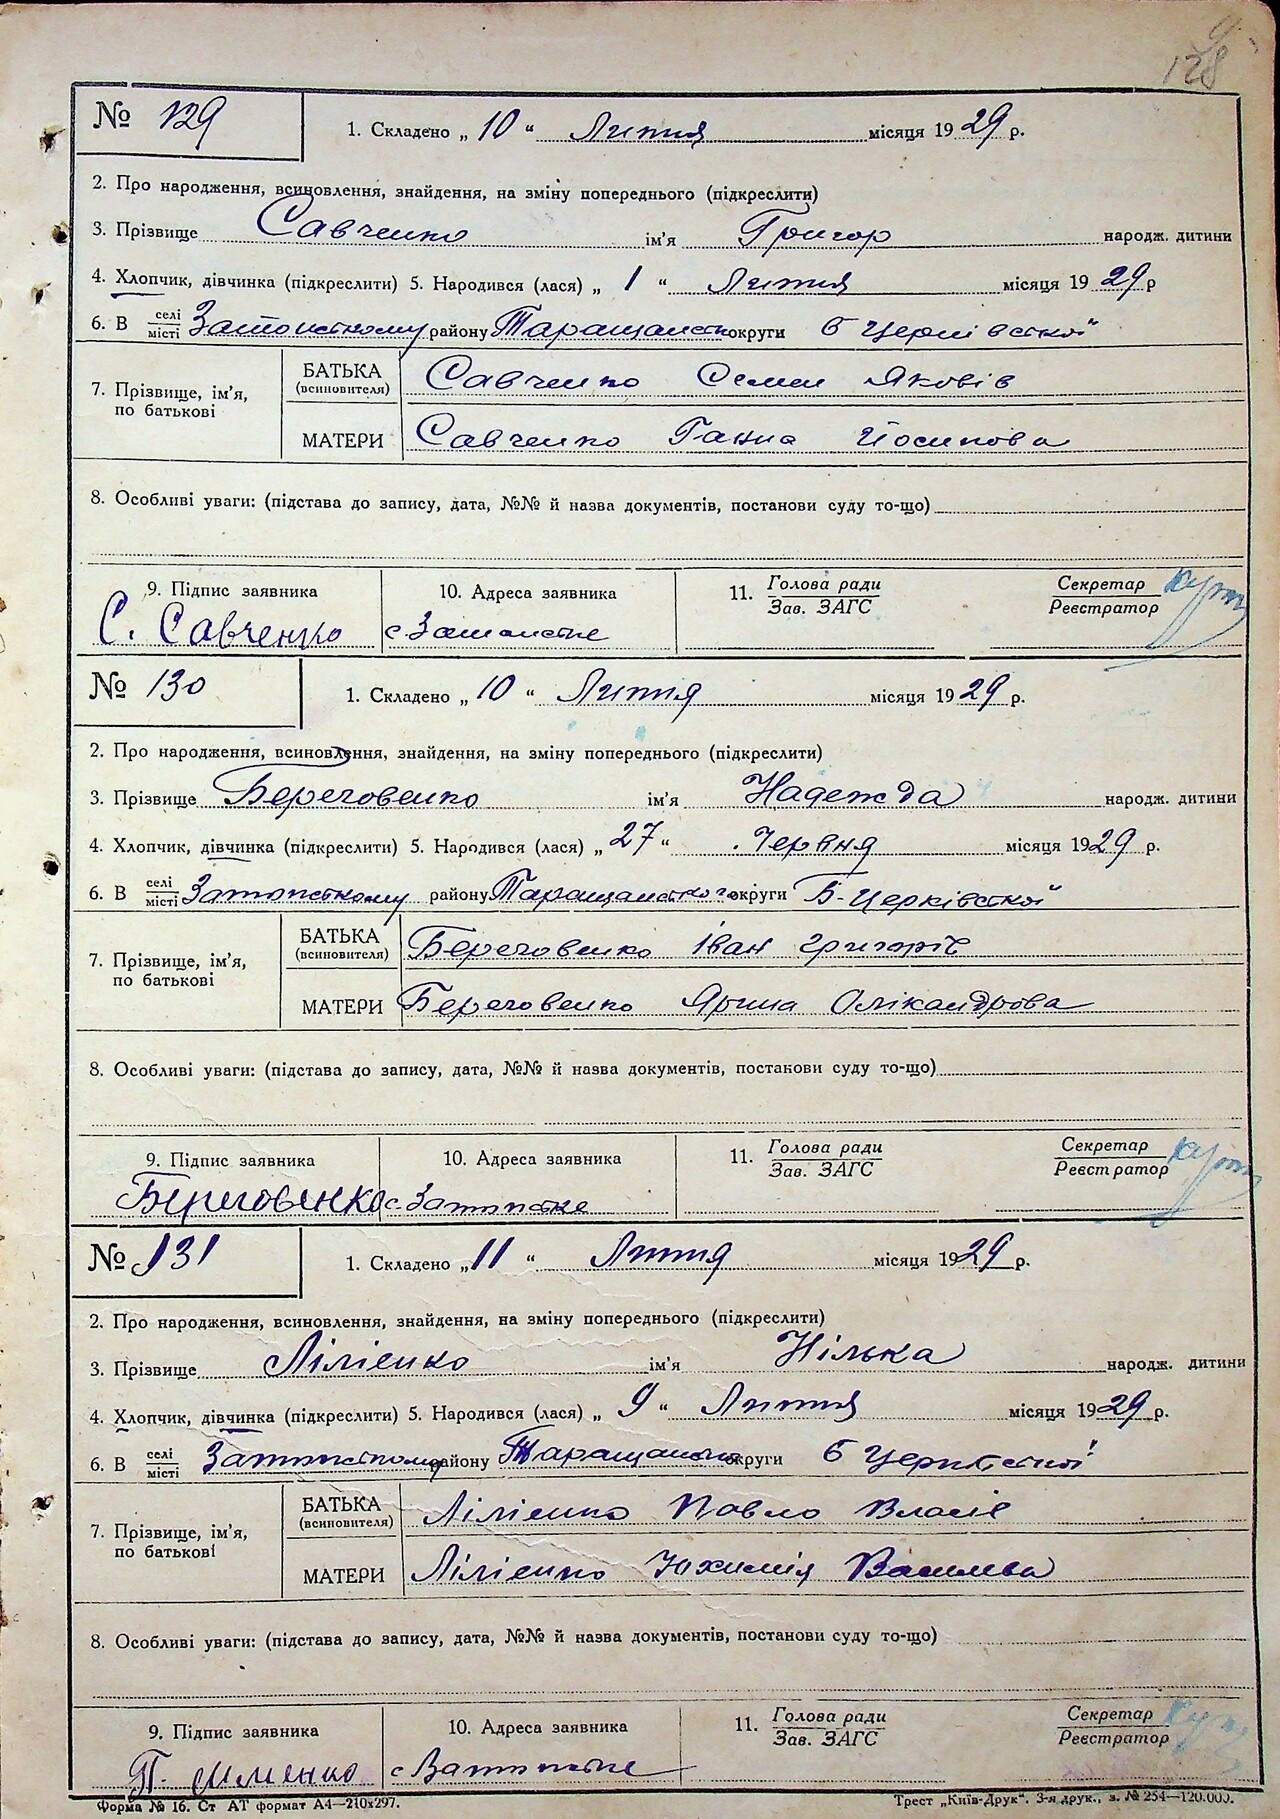 128
№ 129
1. Складено „ 10 “ Липня місяця 1929 р.
2. Про народження, всиновлення, знайдення, на зміну попереднього (підкреслити)
3. Прізвище Савченко ім'я Григор народж. дитини
4. Хлопчик, дівчинка (підкреслити) 5. Народився (лася) „ 1 “ Липня місяця 1929 р
6. В селі місті району округи Б Церківської
7. Прізвище, ім'я, по батькові
БАТЬКА (всиновителя) Савченко Семен Яковів
МАТЕРИ Савченко Ганна Йосипова
8. Особливі уваги: (підстава до запису, дата, №№ й назва документів, постанови суду то-що)
9. Підпис заявника 10. Адреса заявника 11. Голова ради Зав. ЗАГС Секретар Реєстратор
С. Савченко с.
№ 130
1. Складено „ 10 “ Липня місяця 1929 р.
2. Про народження, всиновлення, знайдення, на зміну попереднього (підкреслити)
3. Прізвище Береговенко ім'я Надежда народж. дитини
4. Хлопчик, дівчинка (підкреслити) 5. Народився (лася) „ 27 “ Червня місяця 1929 р.
6. В селі місті району Таращанського округи Б-Церківської
7. Прізвище, ім'я, по батькові
БАТЬКА (всиновителя) Береговенко Іван Григорів
МАТЕРИ Береговенко Ярина
8. Особливі уваги: (підстава до запису, дата, №№ й назва документів, постанови суду то-що)
9. Підпис заявника 10. Адреса заявника 11. Голова ради Зав. ЗАГС Секретар Реєстратор
Береговенко с.
№ 131
1. Складено „ 11 “ Липня місяця 1929 р.
2. Про народження, всиновлення, знайдення, на зміну попереднього (підкреслити)
3. Прізвище ім'я Нілька народж. дитини
4. Хлопчик, дівчинка (підкреслити) 5. Народився (лася) „ 9 “ Липня місяця 1929 р.
6. В селі місті району округи Б Церківської
7. Прізвище, ім'я, по батькові
БАТЬКА (всиновителя) Павло Власів
МАТЕРИ Юхимія
8. Особливі уваги: (підстава до запису, дата, №№ й назва документів, постанови суду то-що)
9. Підпис заявника 10. Адреса заявника 11. Голова ради Зав. ЗАГС Секретар Реєстратор
П. с
Форма № 16. Ст АТ формат А4—210х297. Трест „Київ-Друк“. 3-я друк., з. № 254—120.000.